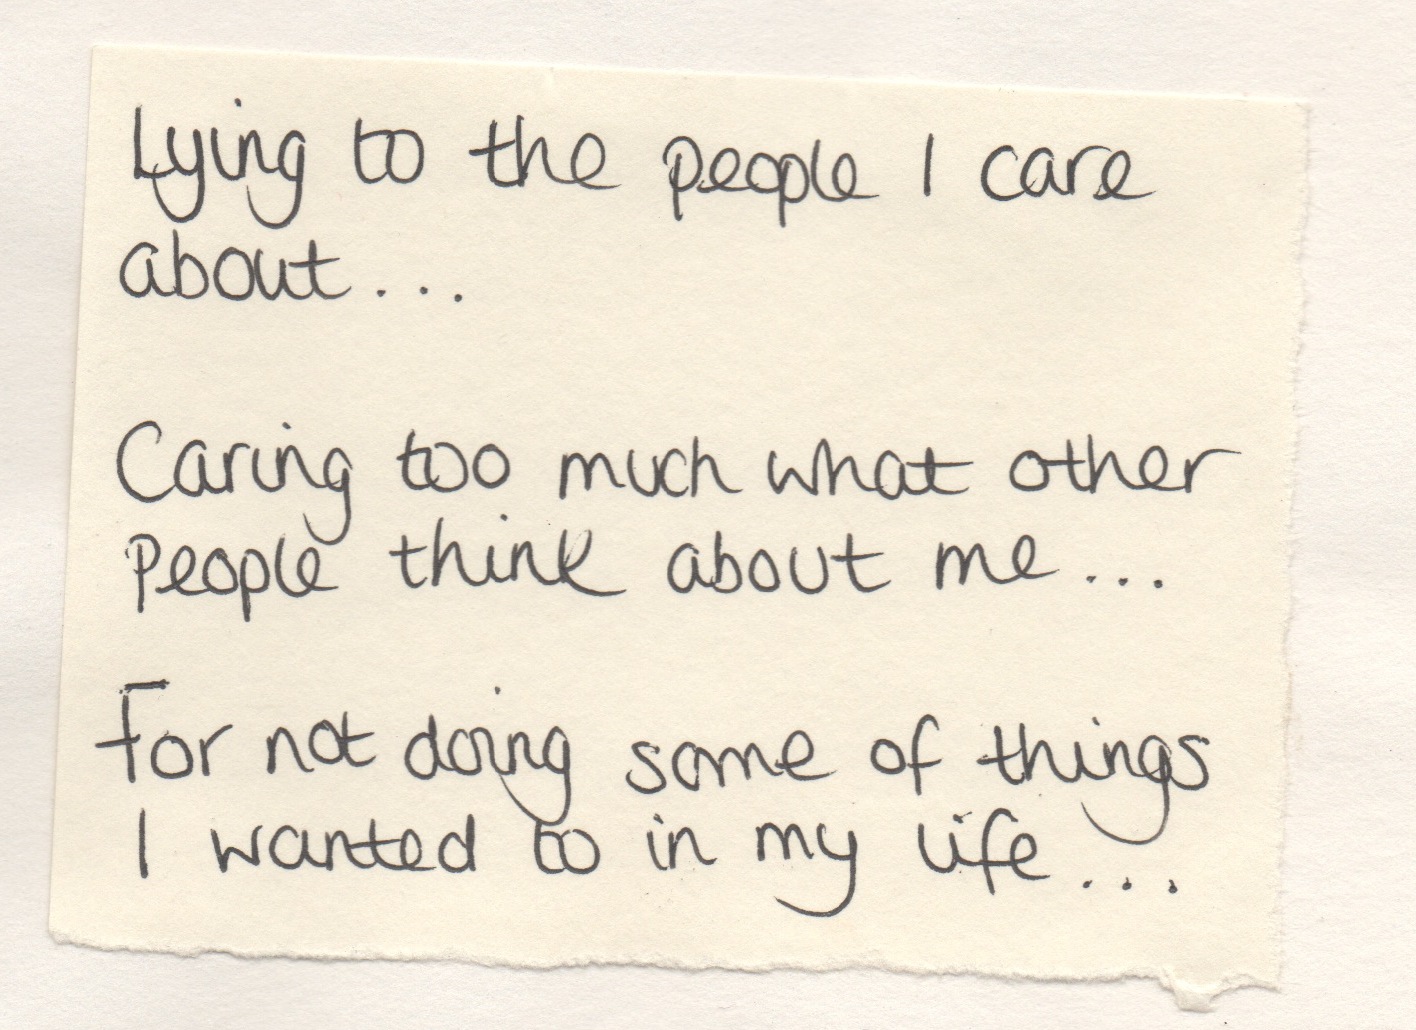 Lying to the people I care
about...
Caring too much what other
people think about me...
For not doing some of things
I wanted to in my life...